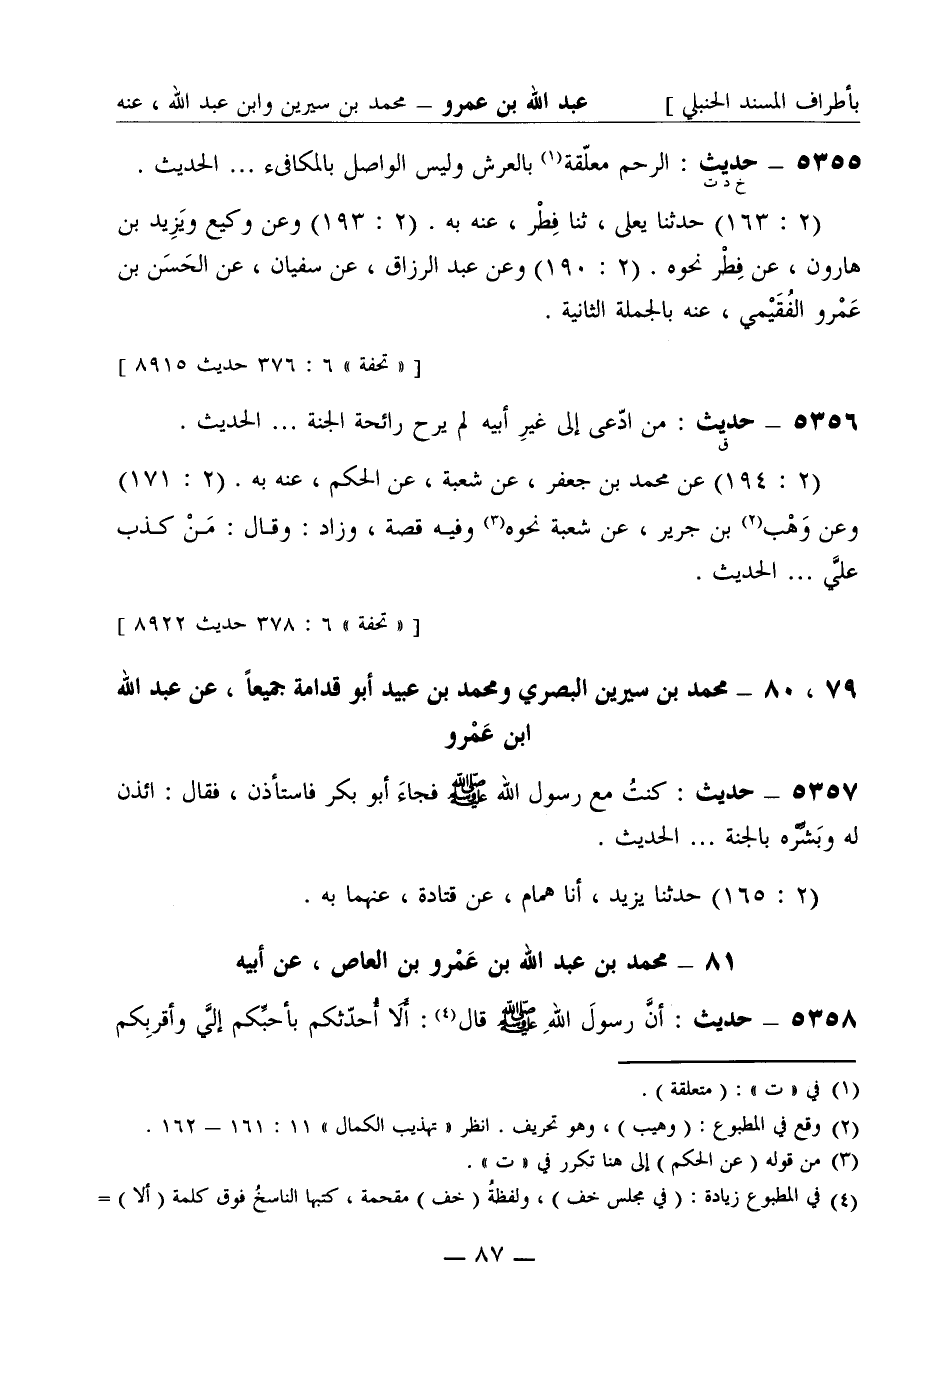 بأطراف المسند الحنبلي ] عبد الله بن عمرو – محمد بن سيرين وابن عبد الله ، عنه
٥٣٥٥ – حديث : الرحم معلّقة(١) بالعرش وليس الواصل بالمكافىء ... الحديث .
خ د ت
(٢ : ١٦٣) حدثنا يعلى ، ثنا فِطْر ، عنه به . (٢ : ١٩٣) وعن وكيع ويَزِيد بن
هارون ، عن فِطْر نحوه . (٢ : ١٩٠) وعن عبد الرزاق ، عن سفيان ، عن الحَسَن بن
عَمْرو الفُقَيْمي ، عنه بالجملة الثانية .
[ « تحفة » ٦ : ٣٧٦ حديث ٨٩١٥ ]
٥٣٥٦ – حديث : من ادّعى إلى غيرِ أبيه لم يرح رائحة الجنة ... الحديث .
ق
(٢ : ١٩٤) عن محمد بن جعفر ، عن شعبة ، عن الحكم ، عنه به . (٢ : ١٧١)
وعن وَهْب(٢) بن جرير ، عن شعبة نحوه(٣) وفيه قصة ، وزاد : وقال : مَنْ كذب
عليَّ ... الحديث .
[ « تحفة » ٦ : ٣٧٨ حديث ٨٩٢٢ ]
٧٩ ، ٨٠ – محمد بن سيرين البصري ومحمد بن عبيد أبو قدامة جميعاً ، عن عبد الله
ابن عَمْرو
٥٣٥٧ – حديث : كنتُ مع رسول الله ﷺ فجاءَ أبو بكر فاستأذن ، فقال : ائذن
له وبَشِّره بالجنة ... الحديث .
(٢ : ١٦٥) حدثنا يزيد ، أنا همام ، عن قتادة ، عنهما به .
٨١ – محمد بن عبد الله بن عَمْرو بن العاص ، عن أبيه
٥٣٥٨ – حديث : أنَّ رسولَ اللهِ ﷺ قال(٤) : أَلَا أُحدّثكم بأحبِّكم إليَّ وأقربِكم
(١) في « ت » : ( متعلقة ) .
(٢) وقع في المطبوع : ( وهيب ) ، وهو تحريف . انظر « تهذيب الكمال » ١١ : ١٦١ – ١٦٢ .
(٣) من قوله ( عن الحكم ) إلى هنا تكرر في « ت » .
(٤) في المطبوع زيادة : ( في مجلس خف ) ، ولفظةُ ( خف ) مقحمة ، كتبها الناسخُ فوق كلمة ( ألا ) =
– ٨٧ –